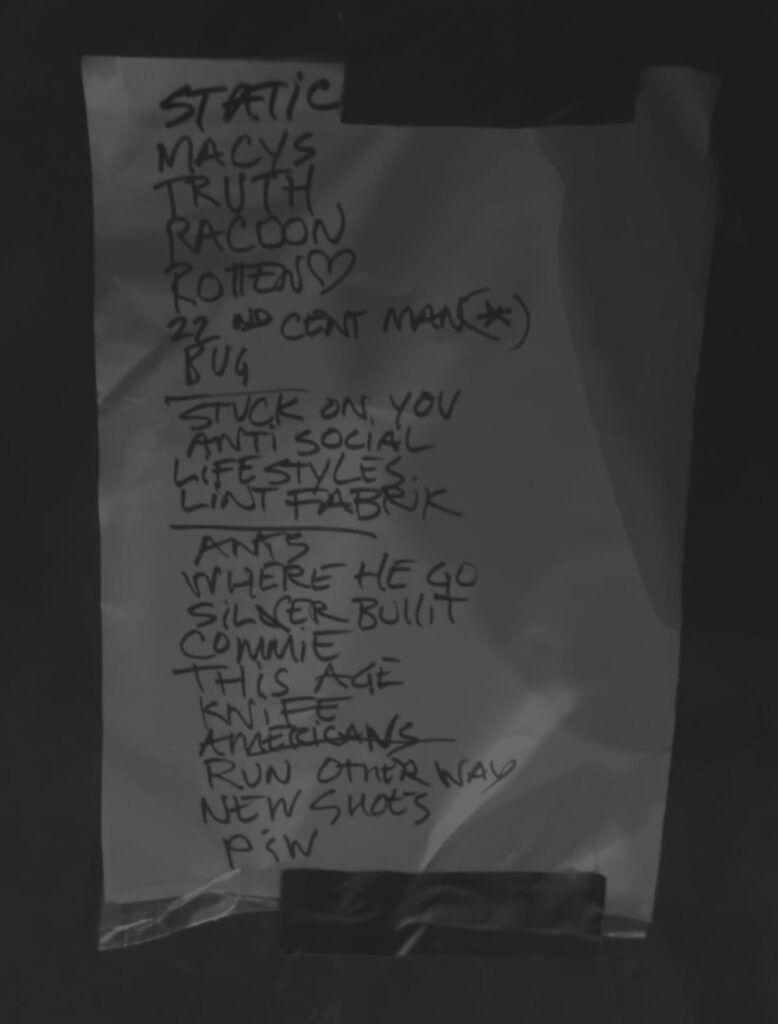 STATIC
MACYS
TRUTH
RACOON
ROTTEN♡
22 ND CENT MAN(*)
BUG
STUCK ON YOU
ANTI SOCIAL
LIFESTYLES
LINT FABRIK
ANTS
WHERE HE GO
SILVER BULLIT
COMMIE
THIS AGE
KNIFE
AMERICANS
RUN OTHER WAY
NEW SHOES
PIW